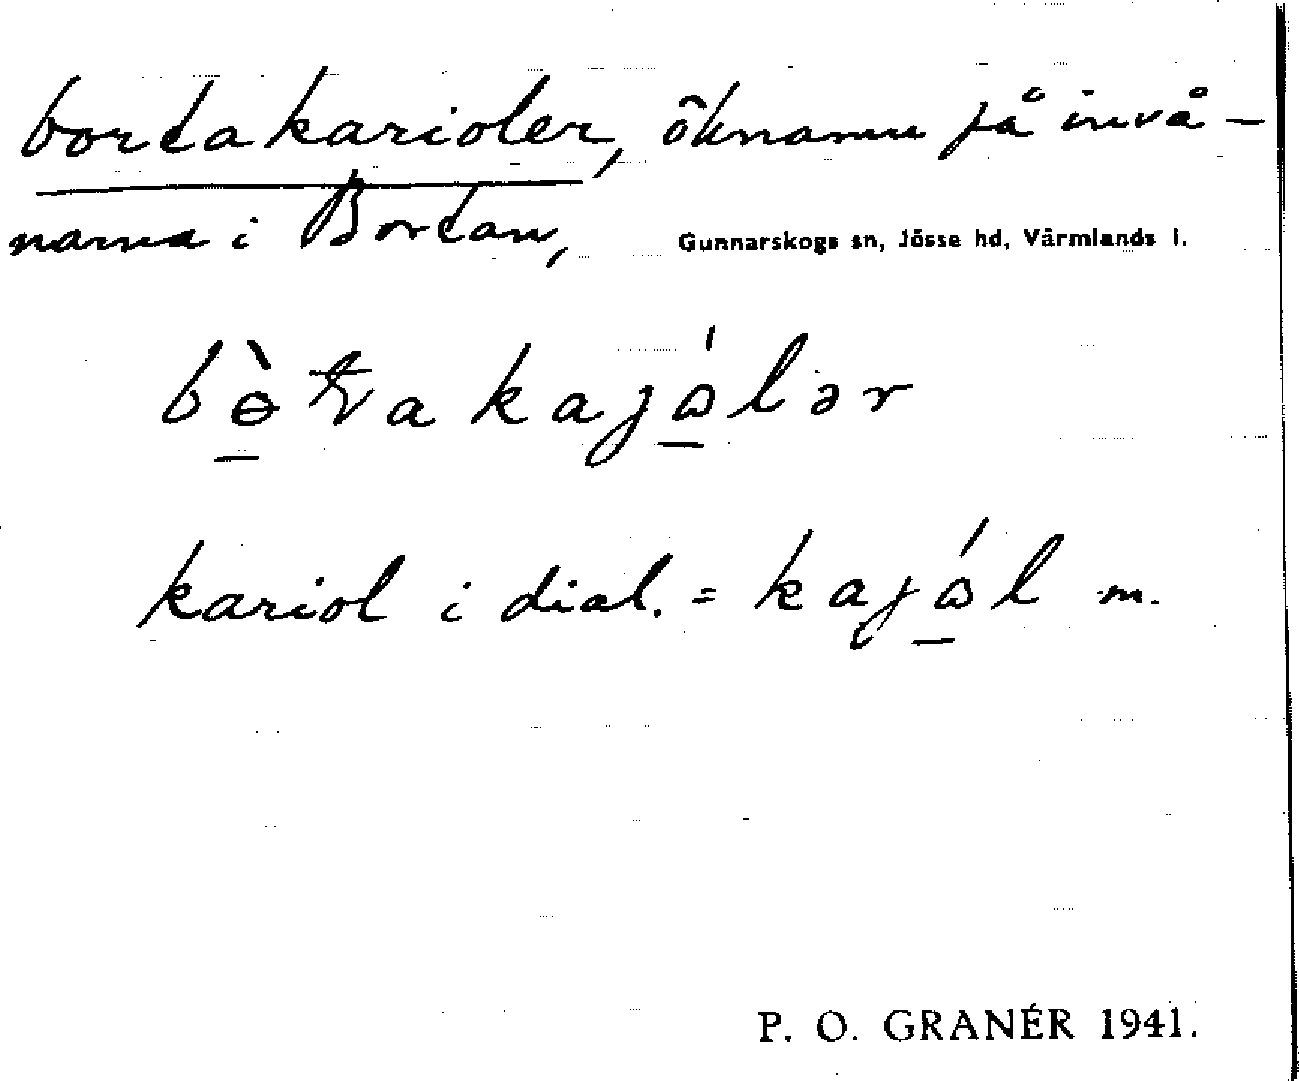 bortakarioler, öknamn på invå-
narna i Bortan, Gunnarskogs sn, Jösse hd, Värmlands l.
bɵ̀ʈakajɷ́lər
kariol i dial. = kajɷ́l m.
P. O. GRANÉR 1941.